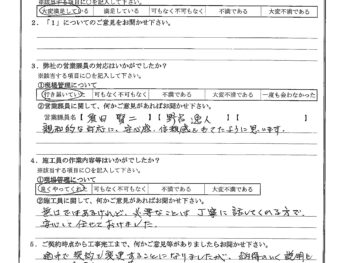 ※該当する項目に○を記入して下さい。
大変満足している 満足している 可も無く不可もなく 不満である 大変不満である
2. 「1」についてのご意見をお聞かせ下さい。
3. 弊社の営業課員の対応はいかがでしたか?
※該当する項目に○を記入して下さい。
①現場管理について
行き届いていた 可もなく不可もなく 不満である 大変不満である 一度も会わなかった
②営業課員に関して、何かご意見があればお聞かせ下さい。
営業課員名【 賢二 】【 野 達人 】【 】
親和的な対応に、安心感、信頼感をもてたように思います。
4. 施工員の作業内容等はいかがでしたか?
※該当する項目に○を記入して下さい。
①現場管理について
良くやってくれた 可もなく不可もなく 不満である 大変不満である
②施工員に関して、何かご意見があればお聞かせ下さい。
ではあるけれど、必要なことは丁寧に話してくれる方で、
安心して任せておけました。
5. ご契約時点から工事完工まで、何かご意見等がありましたらお聞かせ下さい。
契約を変更することになりましたが、説明も